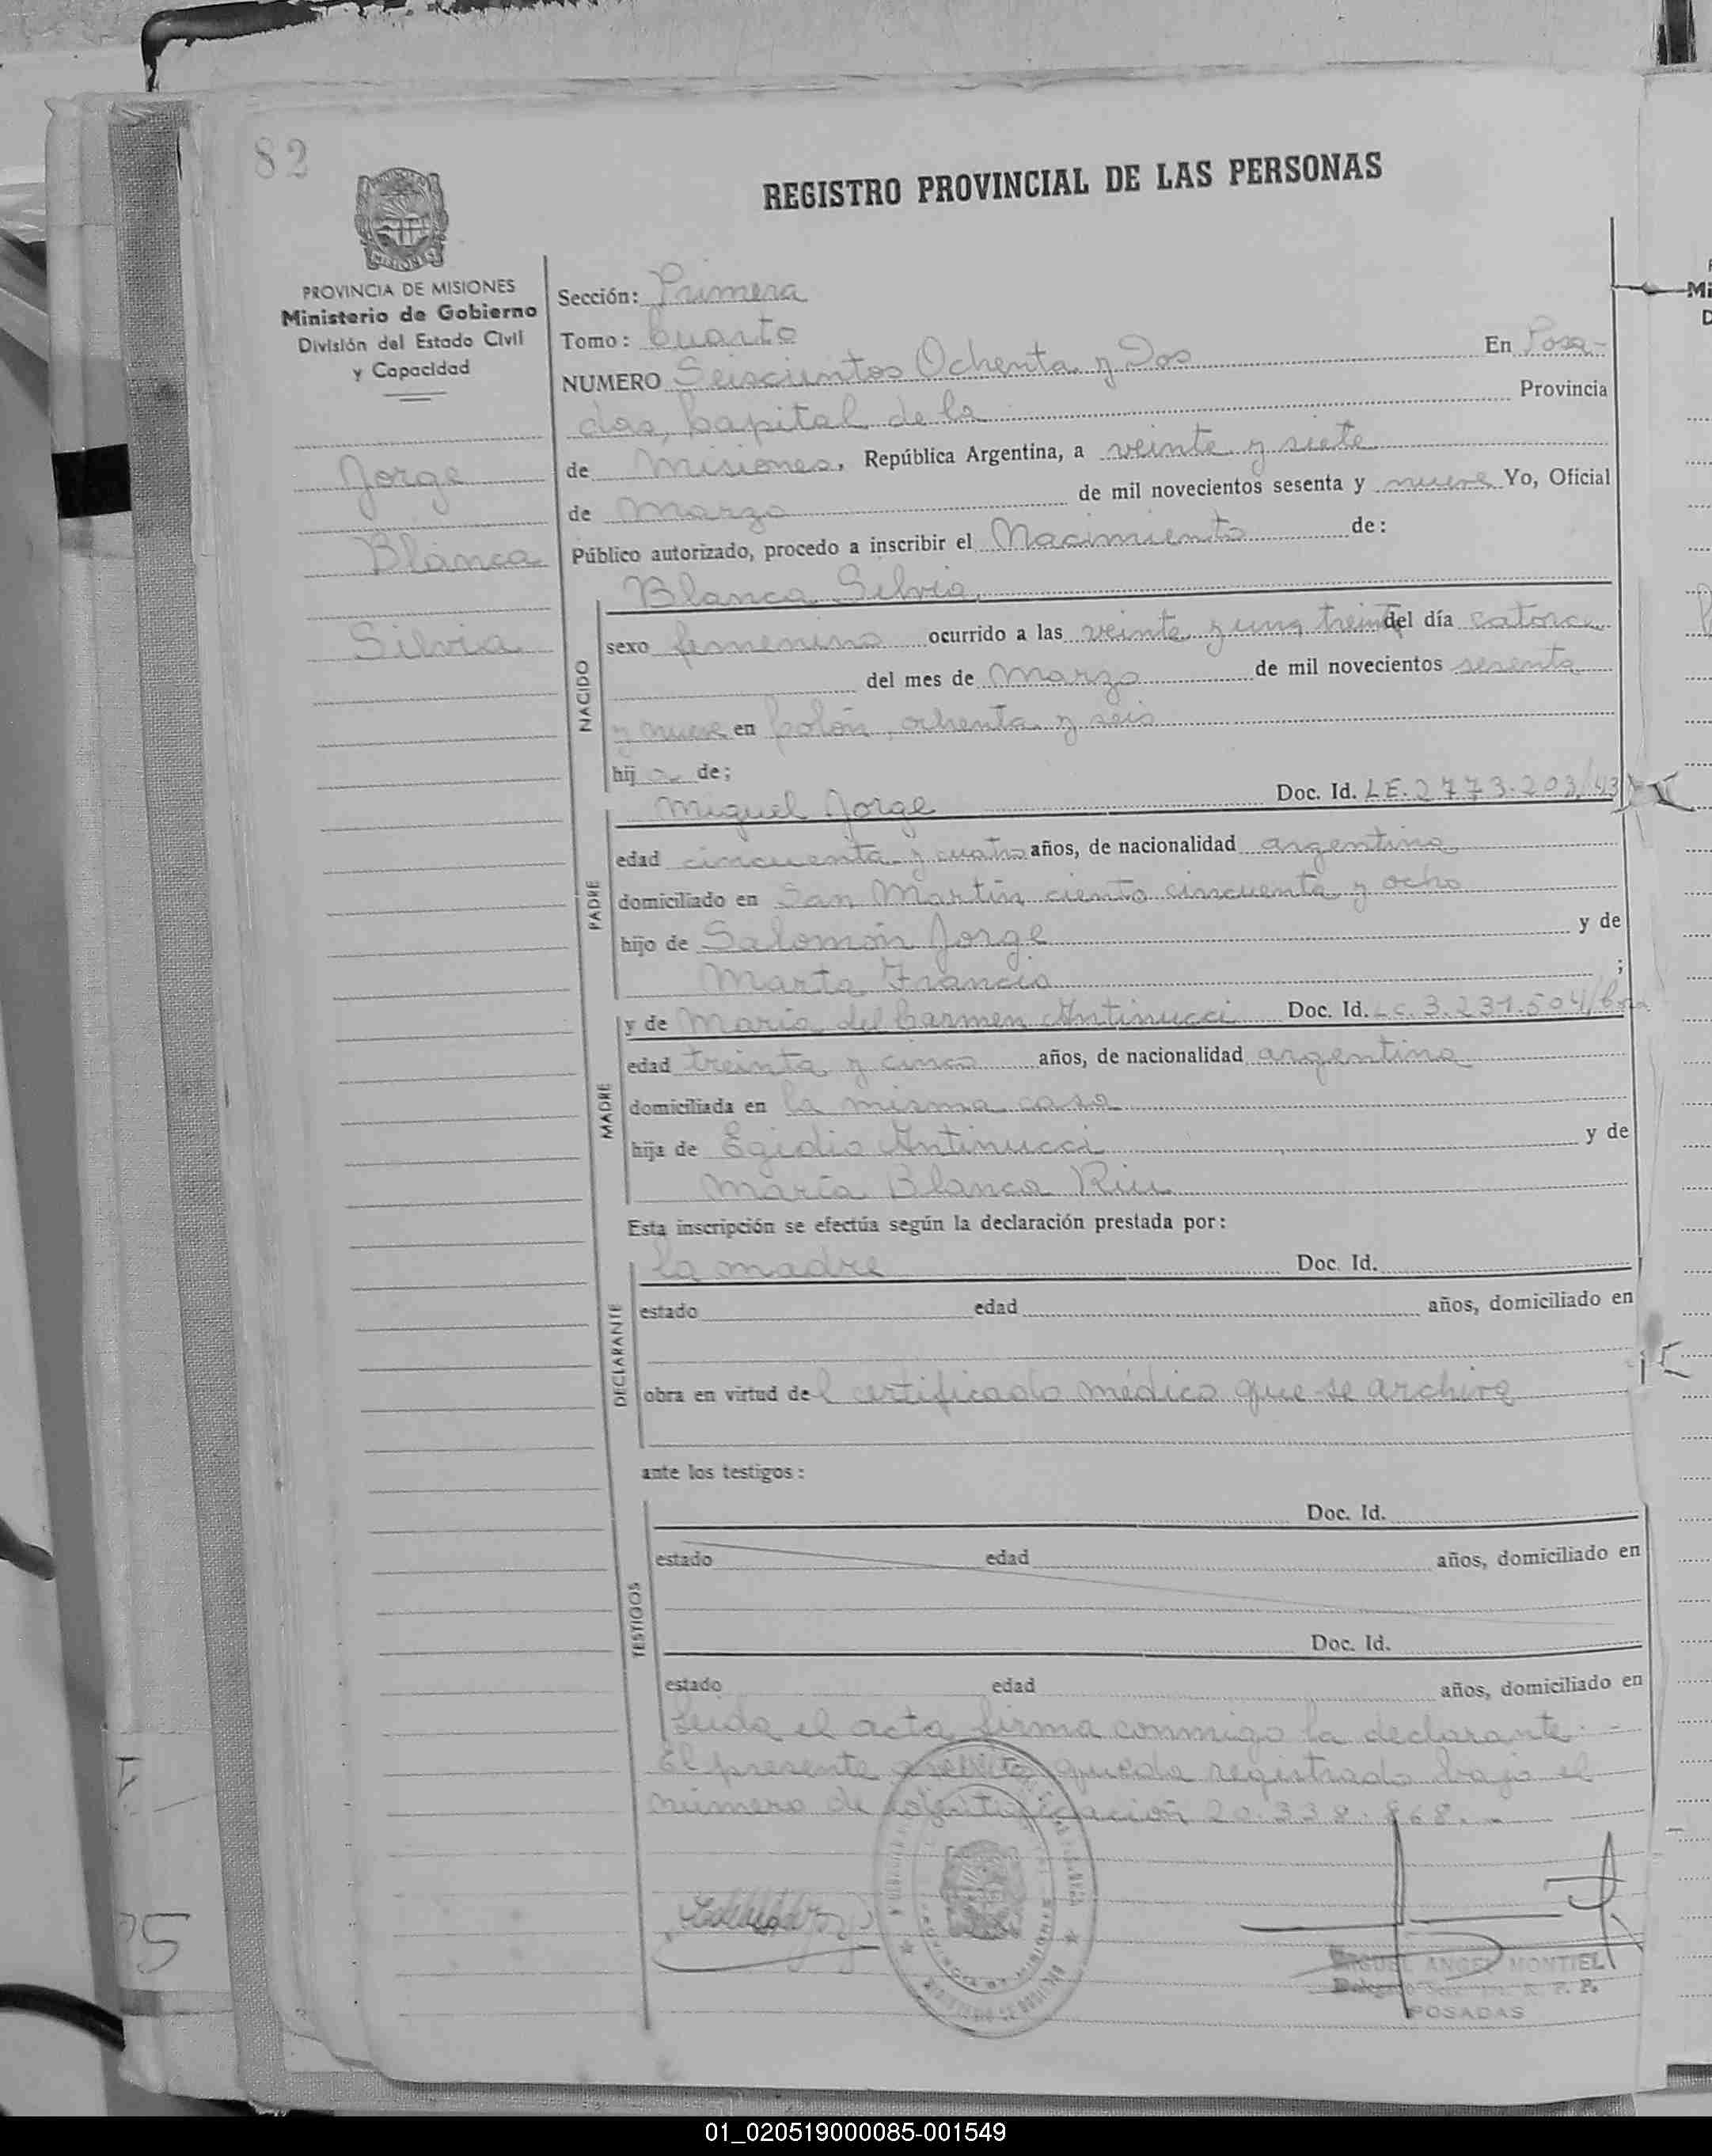 82
REGISTRO PROVINCIAL DE LAS PERSONAS
MISIONES
PROVINCIA DE MISIONES
Ministerio de Gobierno
División del Estado Civil
y Capacidad
Jorge
Blanca
Silvia
Sección: Primera
Tomo: Cuarto
NUMERO Seiscientos Ochenta y Dos En Posa-
das, Capital de la Provincia
de Misiones, República Argentina, a veinte y siete
de Marzo de mil novecientos sesenta y nueve Yo, Oficial
Público autorizado, procedo a inscribir el Nacimiento de:
NACIDO
Blanca Silvia
sexo femenino ocurrido a las veinte y una treinta del día catorce
del mes de Marzo de mil novecientos sesenta
y nueve en Colón, ochenta y seis
hij a de;
PADRE
Miguel Jorge Doc. Id. LE. 2773.203/43
edad cincuenta y cuatro años, de nacionalidad argentina
domiciliado en San Martín ciento cincuenta y ocho
hijo de Salomón Jorge y de
Marta Francis ;
MADRE
y de María del Carmen Antinucci Doc. Id. LC. 3.231.504/
edad treinta y cinco años, de nacionalidad argentina
domiciliada en la misma casa
hija de Egidio Antinucci y de
María Blanca Riu
Esta inscripción se efectúa según la declaración prestada por:
DECLARANTE
La madre Doc. Id.
estado edad años, domiciliado en
obra en virtud de l certificado médico que se archiva
ante los testigos:
TESTIGOS
Doc. Id.
estado edad años, domiciliado en
Doc. Id.
estado edad años, domiciliado en
Leída el acta firma conmigo la declarante.-
El presente queda registrado bajo el
número de identificación 20.338.868.-
MIGUEL ANGEL MONTIEL
POSADAS
01_020519000085-001549